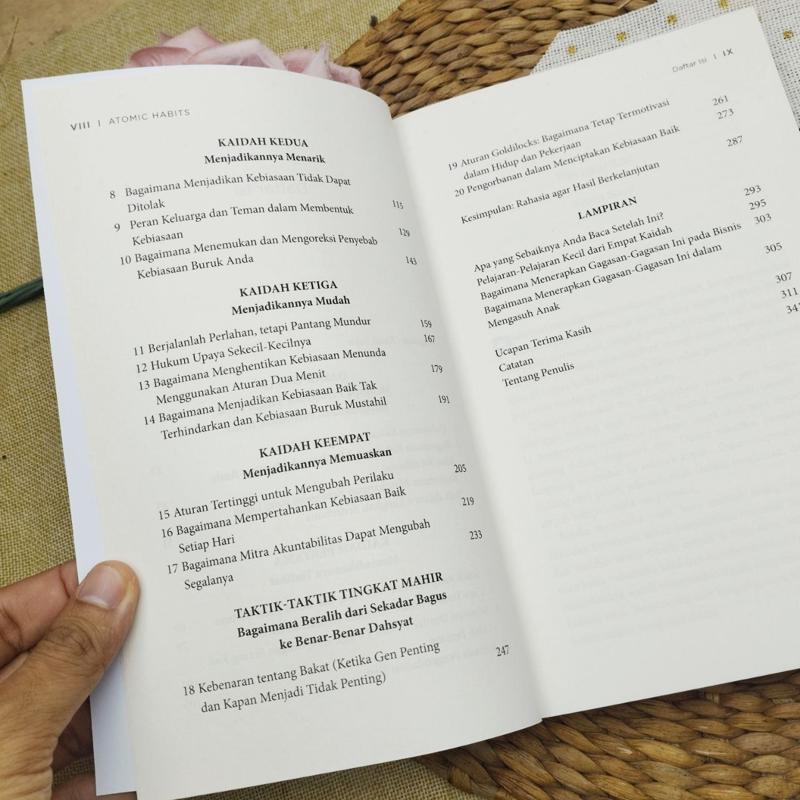 VIII | ATOMIC HABITS
KAIDAH KEDUA
Menjadikannya Menarik
8 Bagaimana Menjadikan Kebiasaan Tidak Dapat
Ditolak 115
9 Peran Keluarga dan Teman dalam Membentuk
Kebiasaan 129
10 Bagaimana Menemukan dan Mengoreksi Penyebab
Kebiasaan Buruk Anda 143
KAIDAH KETIGA
Menjadikannya Mudah
11 Berjalanlah Perlahan, tetapi Pantang Mundur 159
12 Hukum Upaya Sekecil-Kecilnya 167
13 Bagaimana Menghentikan Kebiasaan Menunda
Menggunakan Aturan Dua Menit 179
14 Bagaimana Menjadikan Kebiasaan Baik Tak
Terhindarkan dan Kebiasaan Buruk Mustahil 191
KAIDAH KEEMPAT
Menjadikannya Memuaskan
15 Aturan Tertinggi untuk Mengubah Perilaku 205
16 Bagaimana Mempertahankan Kebiasaan Baik
Setiap Hari 219
17 Bagaimana Mitra Akuntabilitas Dapat Mengubah
Segalanya 233
TAKTIK-TAKTIK TINGKAT MAHIR
Bagaimana Beralih dari Sekadar Bagus
ke Benar-Benar Dahsyat
18 Kebenaran tentang Bakat (Ketika Gen Penting
dan Kapan Menjadi Tidak Penting) 247
Daftar Isi | IX
19 Aturan Goldilocks: Bagaimana Tetap Termotivasi
dalam Hidup dan Pekerjaan 261
20 Pengorbanan dalam Menciptakan Kebiasaan Baik 273
Kesimpulan: Rahasia agar Hasil Berkelanjutan 287
LAMPIRAN
Apa yang Sebaiknya Anda Baca Setelah Ini? 293
Pelajaran-Pelajaran Kecil dari Empat Kaidah 295
Bagaimana Menerapkan Gagasan-Gagasan Ini pada Bisnis 303
Bagaimana Menerapkan Gagasan-Gagasan Ini dalam
Mengasuh Anak 305
Ucapan Terima Kasih 307
Catatan 311
Tentang Penulis